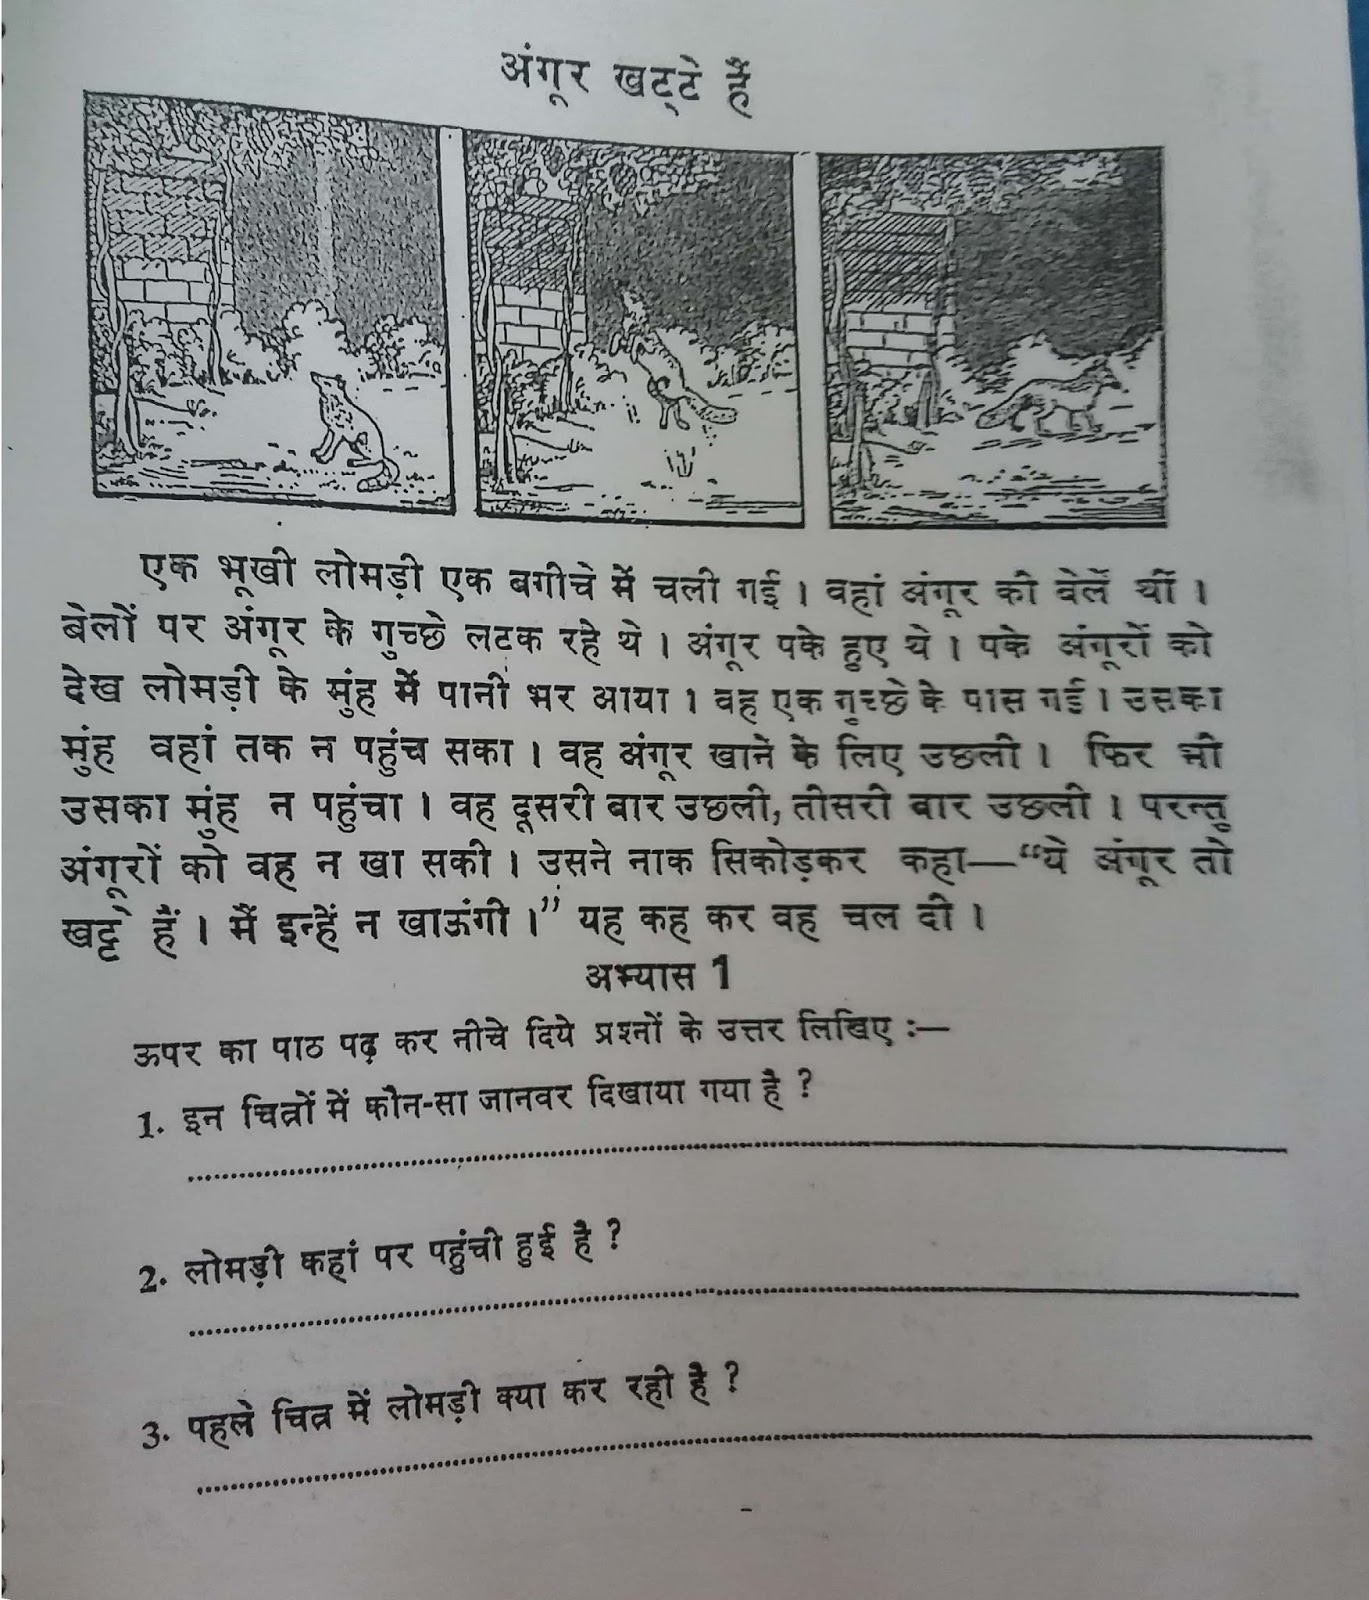 अंगूर खट्टे हैं
एक भूखी लोमड़ी एक बगीचे में चली गई । वहां अंगूर की बेलें थीं ।
बेलों पर अंगूर के गुच्छे लटक रहे थे । अंगूर पके हुए थे । पके अंगूरों को
देख लोमड़ी के मुंह में पानी भर आया । वह एक गुच्छे के पास गई । उसका
मुंह वहां तक न पहुंच सका । वह अंगूर खाने के लिए उछली । फिर भी
उसका मुंह न पहुंचा । वह दूसरी बार उछली, तीसरी बार उछली । परन्तु
अंगूरों को वह न खा सकी । उसने नाक सिकोड़कर कहा—“ये अंगूर तो
खट्टे हैं । मैं इन्हें न खाऊंगी ।” यह कह कर वह चल दी ।
अभ्यास 1
ऊपर का पाठ पढ़ कर नीचे दिये प्रश्नों के उत्तर लिखिए :—
1. इन चित्रों में कौन-सा जानवर दिखाया गया है ?
2. लोमड़ी कहां पर पहुंची हुई है ?
3. पहले चित्र में लोमड़ी क्या कर रही है ?